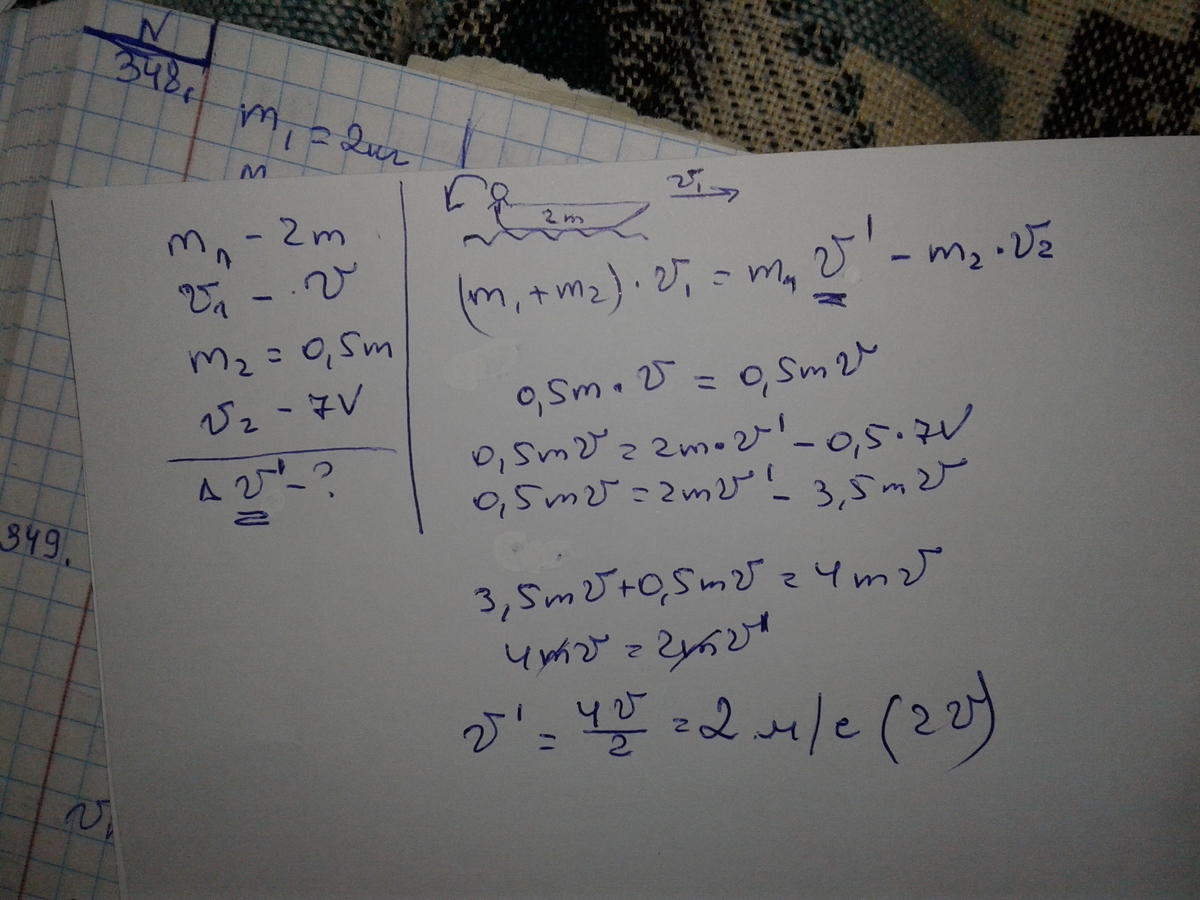 N
348.
m₁ = 2кг
m
m₁ - 2m
v₁ - v
m₂ = 0,5m
v₂ - 7V
Δ v' - ?
2m
v₁
(m₁ + m₂) · v₁ = m₁ v' - m₂ · v₂
0,5m · v = 0,5mv
0,5mv = 2m·v' - 0,5·7V
0,5mv = 2mv' - 3,5mv
3,5mv + 0,5mv = 4mv
4mv = 2mv'
v' = 4v/2 = 2 м/с (2v)
349.
v₁